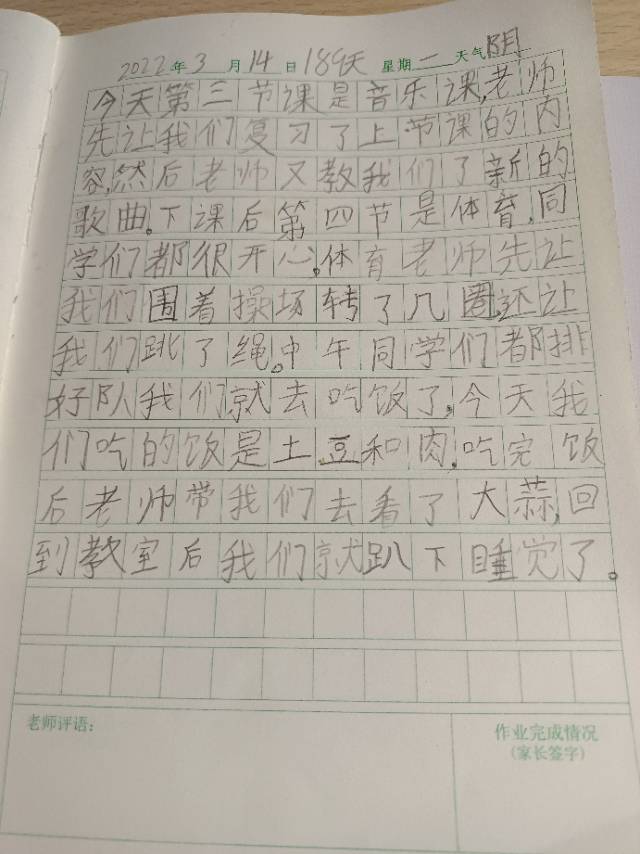 2022年3月14日189天 星期一天气阴
今天第三节课是音乐课,老师
先让我们复习了上节课的内
容,然后老师又教我们了新的
歌曲。下课后第四节是体育,同
学们都很开心。体育老师先让
我们围着操场转了几圈,还让
我们跳了绳。中午同学们都排
好队我们就去吃饭了,今天我
们吃的饭是土豆和肉,吃完饭
后老师带我们去看了大蒜,回
到教室后我们就趴下睡觉了。
老师评语:
作业完成情况
(家长签字)